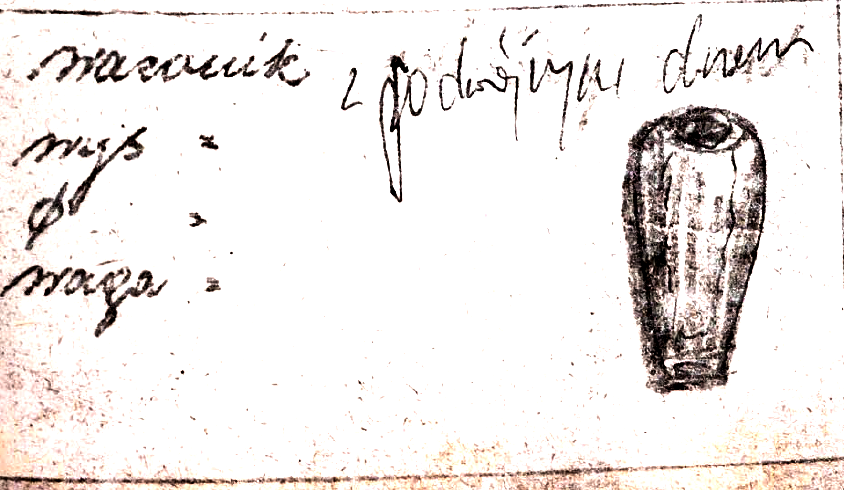 wazonik z podwójnym dnem
wys =
φ =
waga =